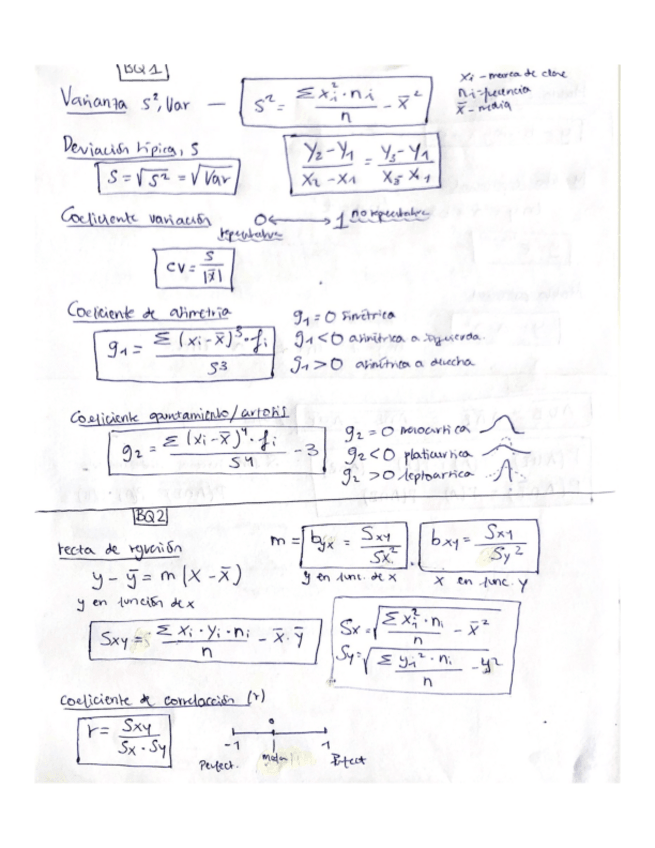 BQ1
Varianza S², Var — S² = Σ xi²·ni / n − x̄²
xi – marca de clase
ni = frecuencia
x̄ – media
Desviación típica, S
S = √S² = √Var
Y₂ − Y₁ / X₂ − X₁ = Y₃ − Y₁ / X₃ X₁
Coeficiente variación 0 ⟷ 1 no representativa
representativa
CV = S / |x̄|
Coeficiente de asimetria
g₁ = Σ (xi − x̄)³·fi / S³
g₁ = 0 simétrica
g₁ < 0 asimétrica a izquierda
g₁ > 0 asimétrica a derecha
Coeficiente apuntamiento/curtosis
g₂ = Σ (xi − x̄)⁴·fi / S⁴ − 3
g₂ = 0 mesocurtica
g₂ < 0 platicurtica
g₂ > 0 leptocurtica
BQ2
recta de regresión
y − ȳ = m (x − x̄)
y en función de x
m = byx = Sxy / Sx²
y en func. de x
bxy = Sxy / Sy²
x en func. y
Sxy = Σ xi·yi·ni / n − x̄·ȳ
Sx = √ Σ xi²·ni / n − x̄²
Sy = √ Σ yi²·ni / n − y²
coeficiente de correlacción (r)
r = Sxy / Sx·Sy
0
-1 1
Perfect. mala Perfect